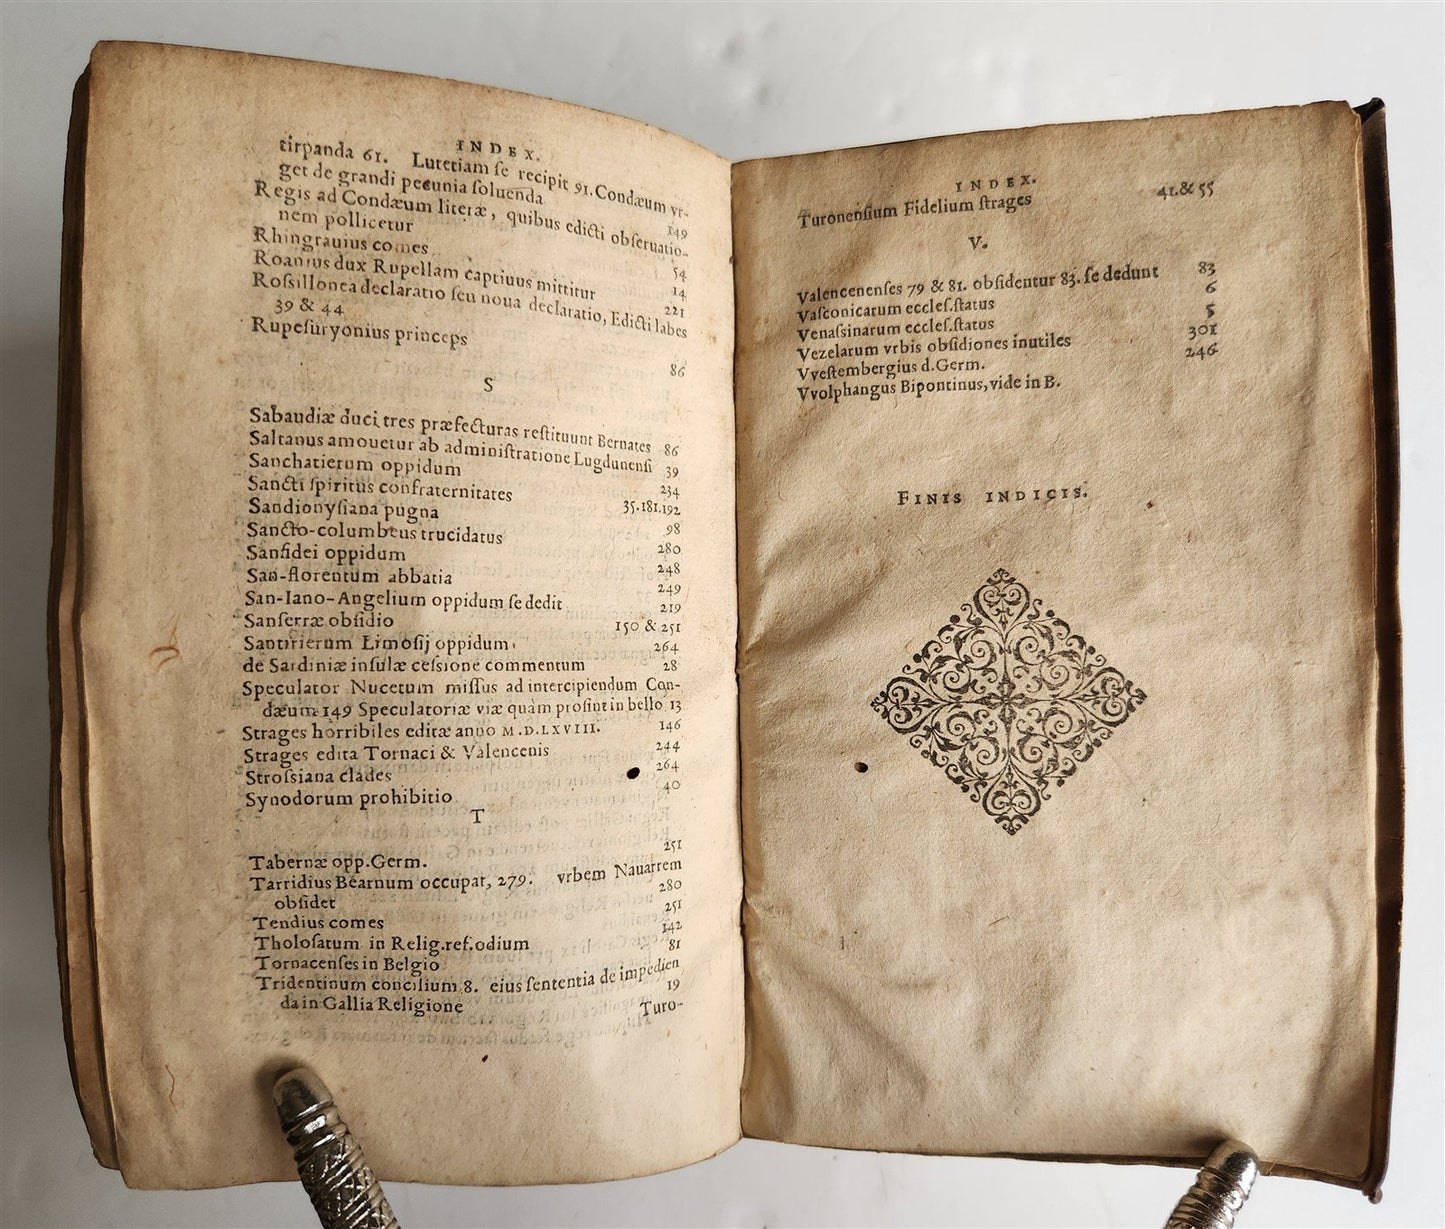 INDEX.
tirpanda 61. Lutetiam ſe recipit 91. Condæum vr-
get de grandi pecunia ſoluenda 149
Regis ad Condæum literæ, quibus edicti obſeruatio-
nem pollicetur 54
Rhingrauius comes 14
Roanius dux Rupellam captiuus mittitur 221
Roſſillonea declaratio ſeu noua declaratio, Edicti labes
39 & 44
Rupeſuryonius princeps 86
S
Sabaudiæ duci tres præfecturas reſtituunt Bernates 86
Saltanus amouetur ab adminiſtratione Lugdunenſi 39
Sanchatierum oppidum 234
Sancti ſpiritus confraternitates 35.181.192
Sandionyſiana pugna 98
Sancto-columbeus trucidatus 280
Sanfidei oppidum 248
San-florentum abbatia 249
San-Iano-Angelium oppidum ſe dedit 219
Sanſerræ obſidio 150 & 251
Santirierum Limoſij oppidum 264
de Sardiniæ inſulæ ceſsione commentum 28
Speculator Nucetum miſſus ad intercipiendum Con-
dæum 149 Speculatoriæ viæ quàm proſint in bello 13
Strages horribiles editæ anno M.D.LXVIII. 146
Strages edita Tornaci & Valencenis 244
Stroſsiana clades 264
Synodorum prohibitio 40
T
Tabernæ opp.Germ. 251
Tarridius Bearnum occupat, 279. vrbem Nauarrem
obſidet 280
Tendius comes 251
Tholoſatum in Relig.ref.odium 142
Tornacenſes in Belgio 81
Tridentinum concilium 8. eius ſententia de impedien
da in Gallia Religione 19
Turo-
INDEX.
Turonenſium Fidelium ſtrages 41.& 55
V.
Valencenenſes 79 & 81. obſidentur 83. ſe dedunt 83
Vaſconicarum eccleſ.ſtatus 6
Venaſsinarum eccleſ.ſtatus 5
Vezelarum vrbis obſidiones inutiles 301
Vveſtembergius d.Germ. 246
Vvolphangus Bipontinus, vide in B.
FINIS INDICIS.